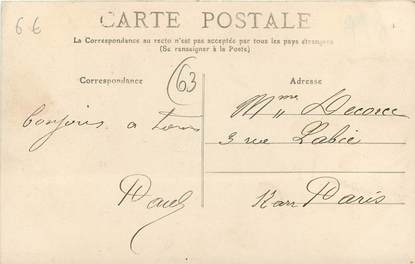 66
CARTE POSTALE
La Correspondance au recto n'est pas acceptée par tous les pays étrangers
(Se renseigner à la Poste)
Correspondance
63
Adresse
bonjour a tous
Paul
Mme Decorce
3 rue Labie
Paris